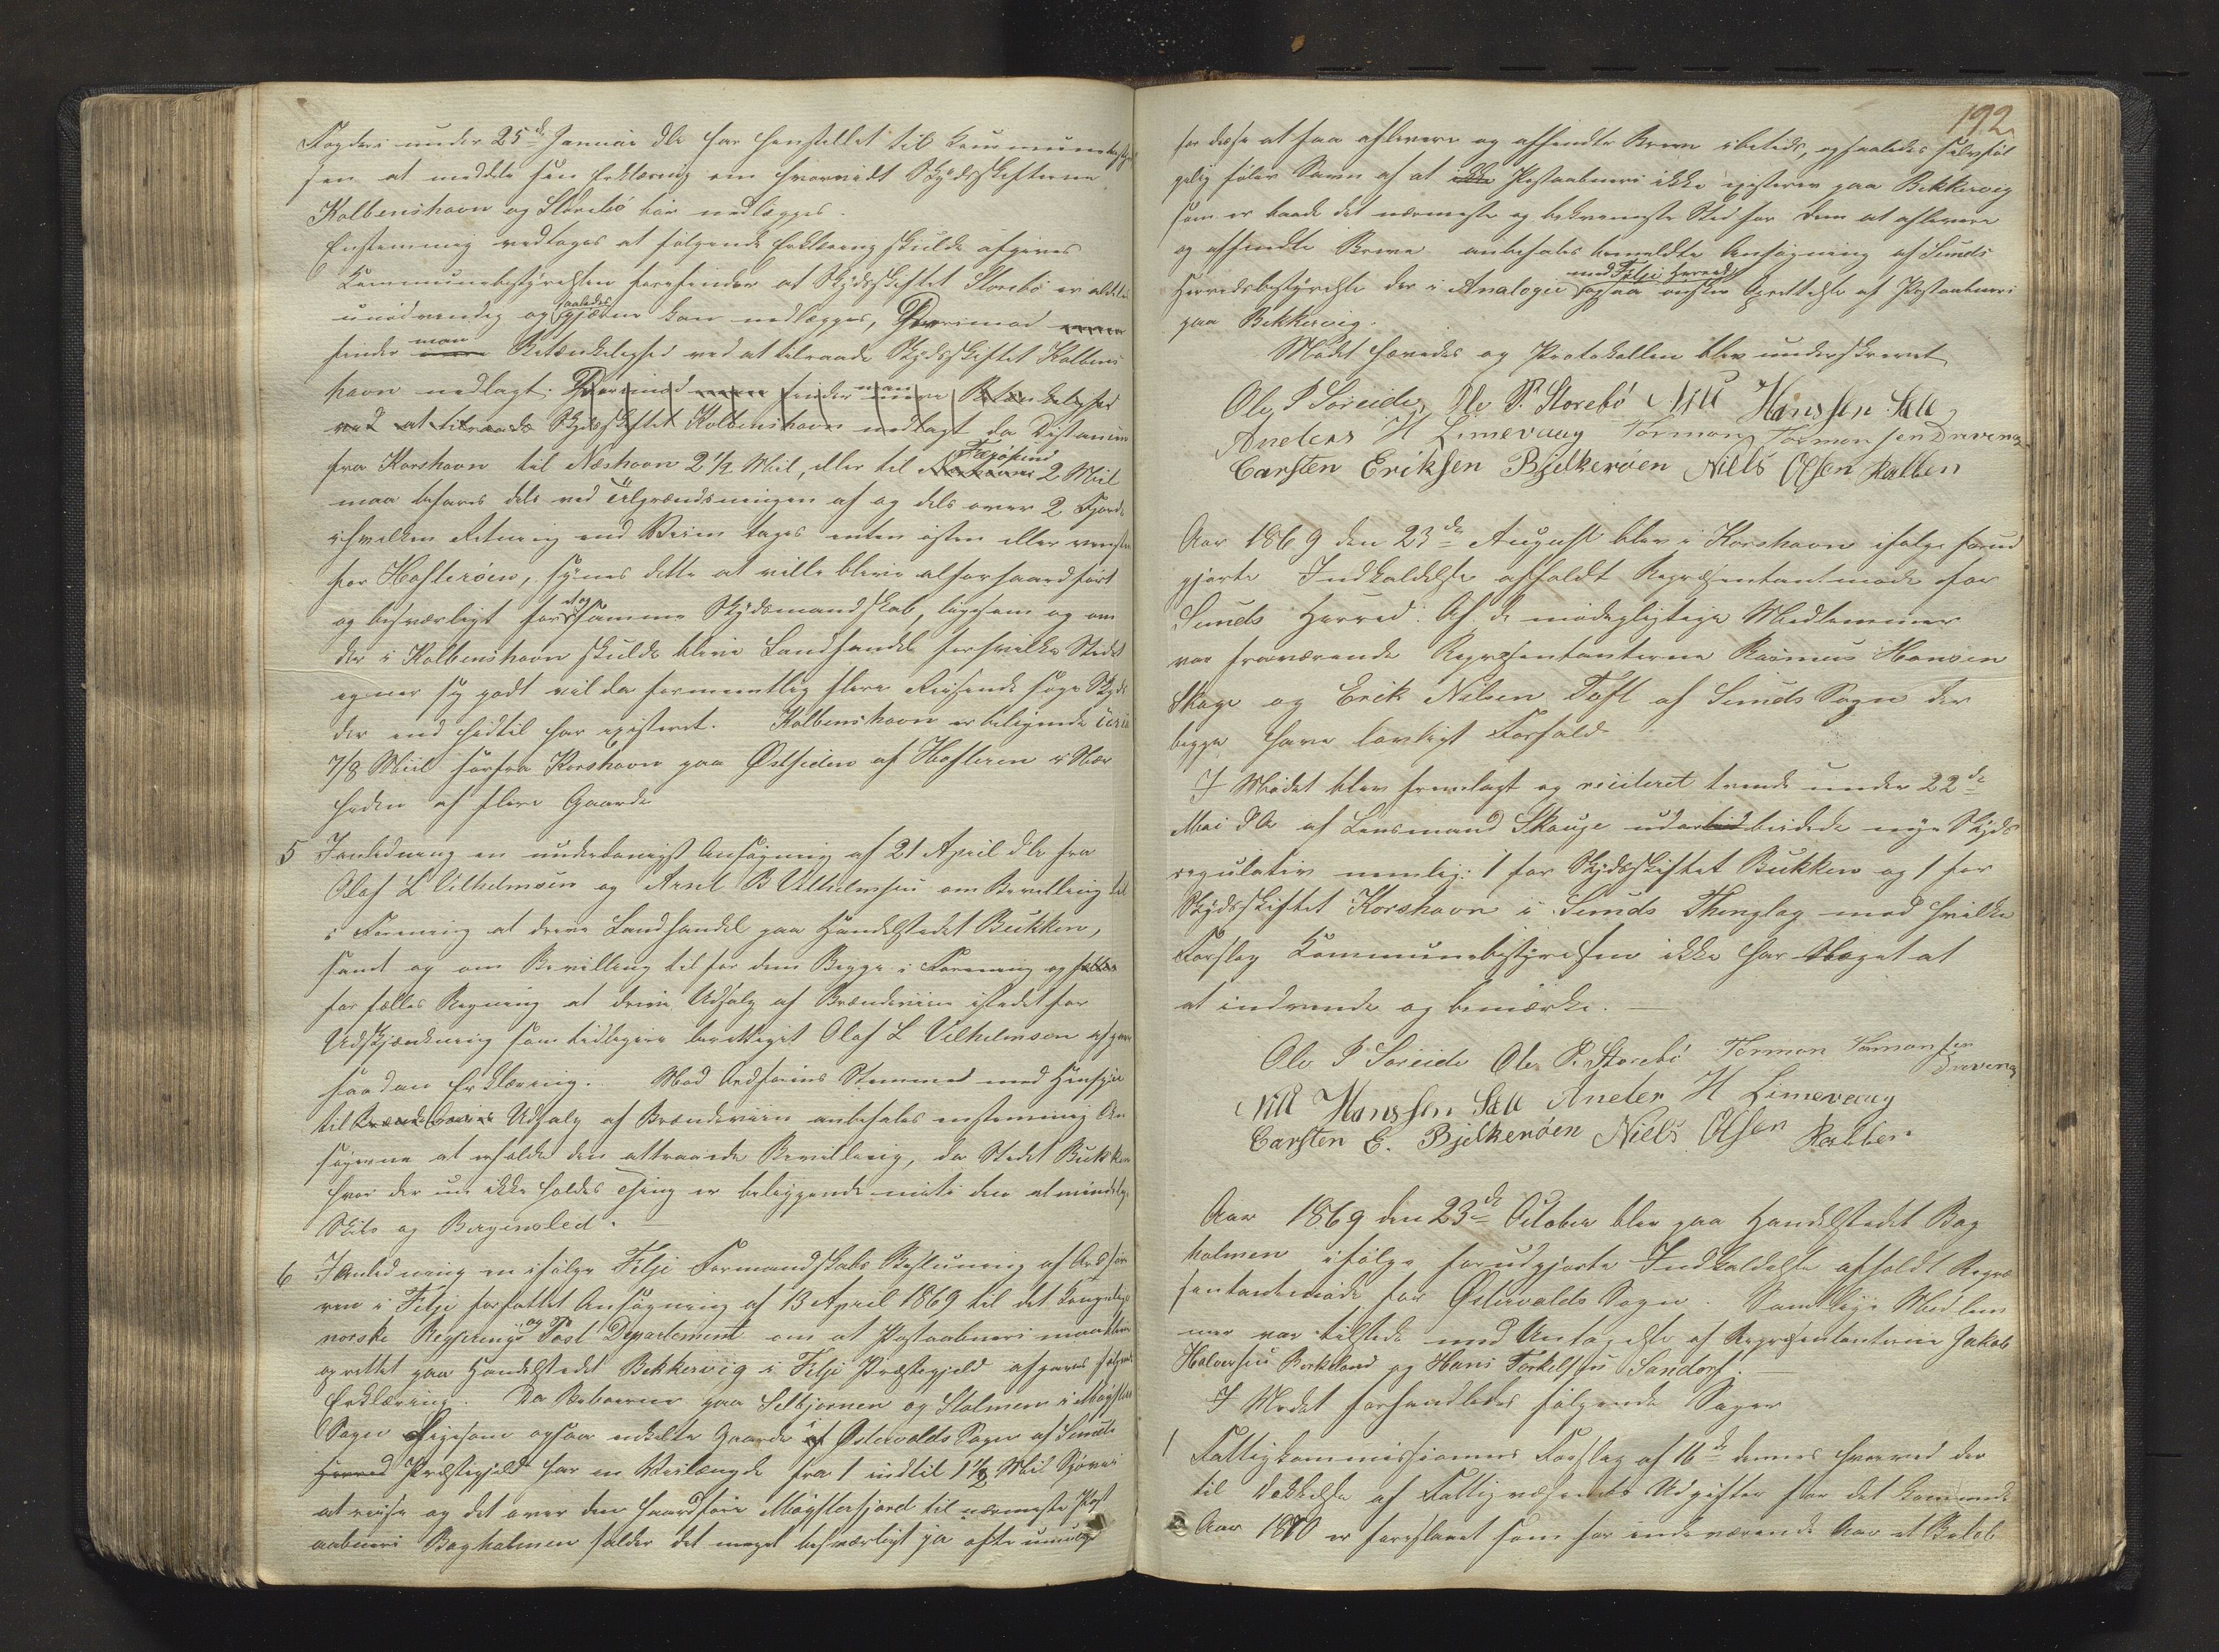 Fogderi under 25de Januar dA har henstillet til Kommunebestyrel
sen at meddele sin Erklæring om hvorvidt Skydsskifterne
Kolbenshavn og Storebö bör nedlægges.
Enstemmig vedtoges at fölgende Erklæring skulde afgives
Kommunebestyrelsen forefinder at Skydsskiftet Storebö er aldeles
unödvendig og saaledes gjerne kan nedlægges, Derimod
finder man Betænkelighed ved at tilraade Skydsskiftet Kolbens
havn nedlagt. Derimod finder man Betænkelighed
ved at tilraade Skydsskiftet Kolbenshavn nedlagt da Distancen
fra Korshavn til Næshavn 2 1/2 Miil, eller til 2 Miil
maa befares dels ved Tilgrændsningen af og dels over 2 Fjorde
i hvilken Retning end Veien tages enten östen eller vesten
for Hufteröen, synes dette at ville blive alfor haardfört
og besværligt for et og samme Skydsmandskab, ligesom og om
der i Kolbenshavn skulde blive Landhandel for hvilke Stedet
egner sig godt vil da formentlig flere Reisende söge Skyds
der end hidtil har existeret. Kolbenshavn er beliggende circa
7/8 Miil sörfra Korshavn paa Østsiden af Hufteren i Nær
heden af flere Gaarde
5 I Anledning en underdanigst Ansögning af 21 April dA fra
Olaf L Vilhelmsen og Arnt B Vilhelmsen om Bevilling til
i Forening at drive Landhandel paa Handelstedet Bukken,
samt og om Bevilling til for dem Begge i Forening og
for fælles Regning at drive Udsalg af Brændeviin istedetfor
Udskjænkning som tidligere berettiget Olaf L Vilhelmsen afgaves
saadan Erklæring. Mod Ordförerens Stemme med Hensyn
til Udsalg af Brændeviin anbefales enstemmig An
sögerne at erholde den attraaede Bevilling, da Stedet Bukken
hvor der nu ikke holdes Thing er beliggende midt i den almindelige
Skibs og Bergensled.
6 I Anledning en ifölge Fitje Formandskabs Beslutning af Ordföre
ren i Fitje forfattet Ansögning af 13 April 1869 til det kongelige
norske Regjerings og Post Departement om at Postaabneri maatte blive
oprettet paa Handelstedet Bekkervig i Fitje Præstegjeld afgaves fölgende
Erklæring. Da Beboerne paa Selbjornen og Stolmen i Møgster
Sogn ligesom ogsaa enkelte Gaarde i Østervolds Sogn af Sunds
Herred Præstegjeld har en Veilængde fra 1 indtil 1 1/2 Miil Söveis
at reise og det over den haardföre Møgsterfjord til nærmeste Post
aabneri Bagholmen falder det meget besværligt ja ofte umuligt
192
for disse at faa aflevere og afhente Breve itide, og saaledes selvföl
gelig föler Savn af at ikke Postaabneri ikke existerer paa Bekkervig
som er baade det nærmeste og bekvemmeste Sted for dem at aflevere
og afhente Breve anbefales bemeldte Ansögning af Sunds
Herredsbestyrelse der i Analogi med Fitje Herred ogsaa önsker Oprettelse af Postaabneri
paa Bekkervig.
Mödet hævedes og Protokollen blev underskrevet
Ole P Söreide, Ole P. Storebö Nill Hanssen Sæle
Anders H Limevaag Tormon Tormonsen Drevenæ
Carsten Eriksen Bjelkeröen Niels Olsen Kalven
Aar 1869 den 23de August blev i Korshavn ifölge forud
gjorte Indkaldelse afholdt Representantmöde for
Sunds Herred. Af de mödepligtige Medlemmer
var fraværende Representanterne Rasmus Hansen
Skage og Erik Nilsen Toft af Sunds Sogn der
begge have lovligt Forfald
I Mödet blev fremlagt og reciteret tvende under 22de
Mai dA af Lensmand Skauge udarbeidede nye Skyds
regulativ nemlig: 1 for Skydsskiftet Bukken og 1 for
Skydsskiftet Korshavn i Sunds Thinglag mod hvilke
Forslag Kommunebestyrelsen ikke har Noget at
at indvende og bemærke.
Ole P Soreide Ole P. Storebö Tormon Tormonsen
Drevenæ
Nill Hanssen Sæle Anders H Limevaag
Carsten E. Bjelkeröen Niels Olsen Kalven.
Aar 1869 den 23de October blev paa Handelstedet Bag
holmen ifölge forudgjorte Indkaldelse afholdt Repræ
sentantmöde for Østervolds Sogn. Samtlige Medlem
mer var tilstede med Undtagelse af Representanterne Jakob
Halvorsen Birkeland og Hans Torkelsen Sandorf.
I Mödet forhandledes fölgende Sager
1 Fattigkommissionens Forslag af 16de dennes hvorved der
til Dækkelse af Fattigvæsenets Udgifter for det kommende
Aar 1870 er foreslaaet som for indeværende Aar et Belöb